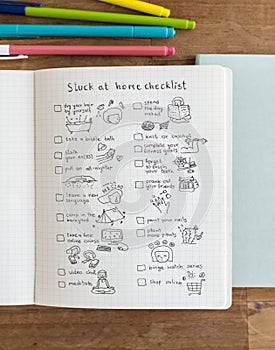 Stuck at home checklist
dry your hair
by yourself
take a bubble bath
stalk
your ex(es)
pull an all-nighter
learn a new
language
camp in the
backyard
take a free
online course
video chat
meditate
spend
the day
naked
knit or crochet
complete your
fitness goals
forget
to brush
your teeth
prank call
your friends
paint your nails
plant
more plants
binge watch series
shop online